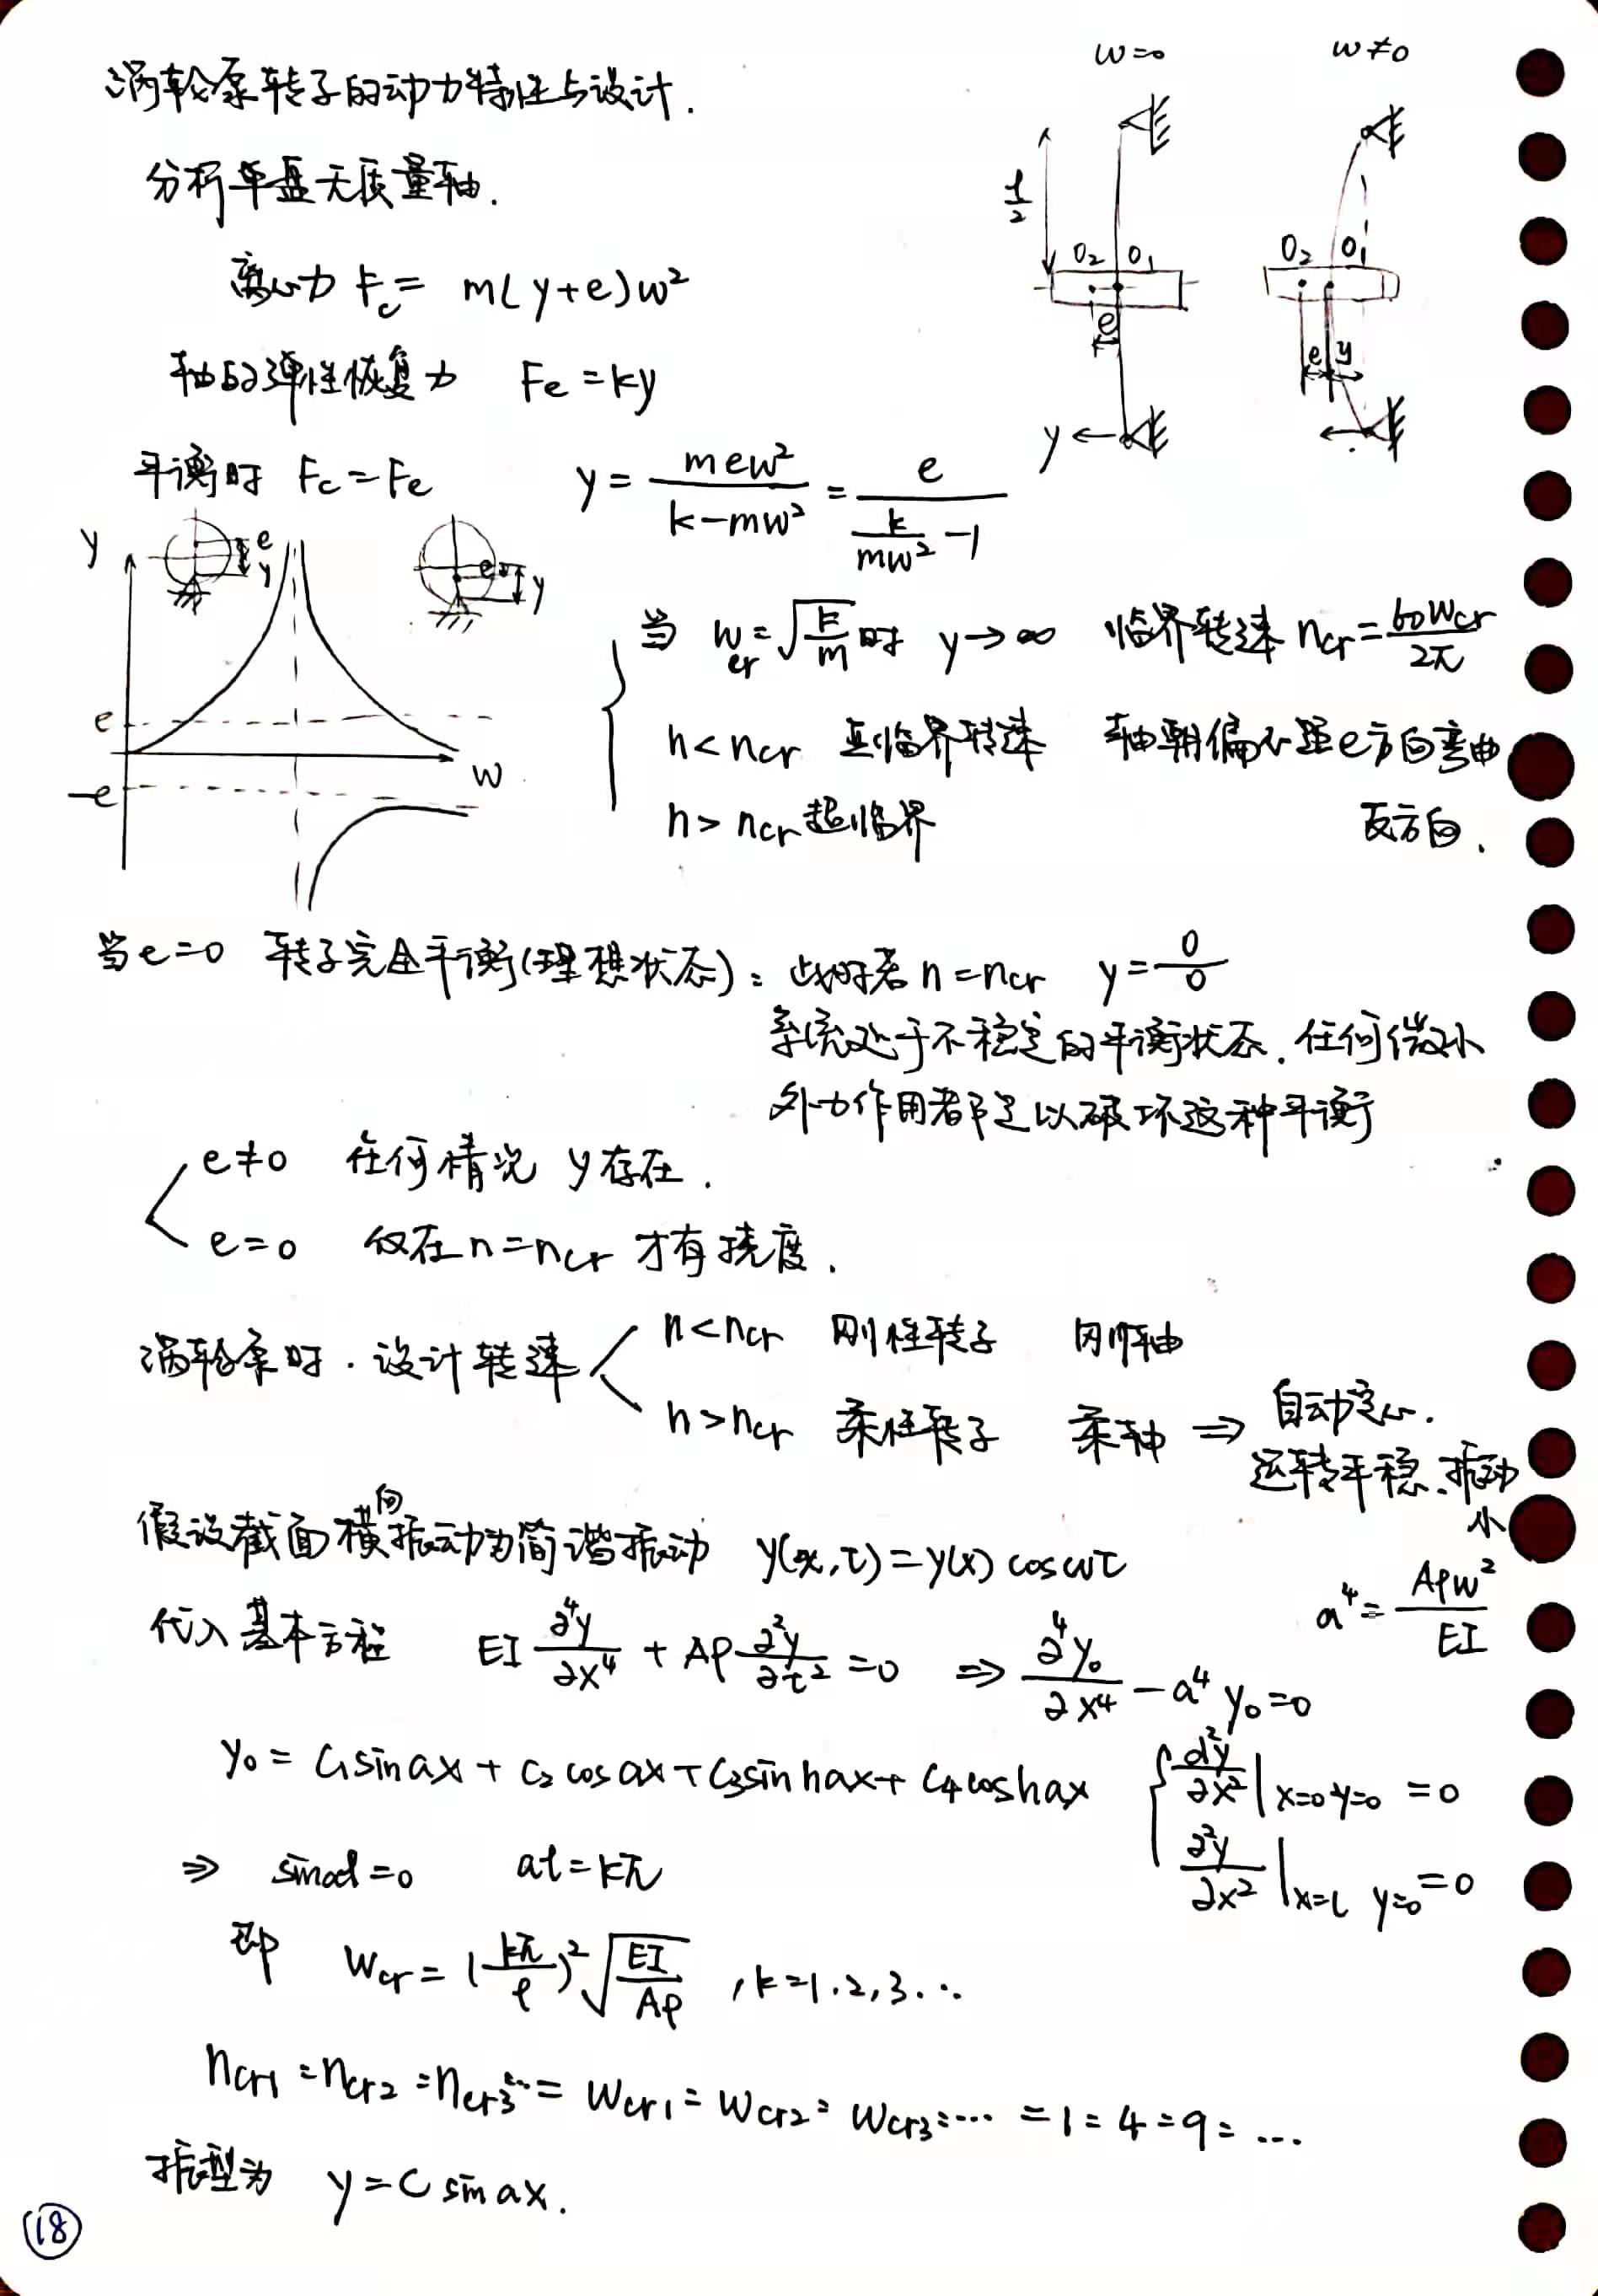 涡轮泵转子的动力特性与设计.
w=0 w≠0
分析单盘无质量轴.
l/2
O₂ O₁ O₂ O₁
离心力 Fc = m(y+e)w²
e e y
轴的弹性恢复力 Fe = ky
y
平衡时 Fc = Fe y = mew²/(k-mw²) = e/(k/(mw²) - 1)
y e y e y
当 wcr = √(k/m) 时 y→∞ 临界转速 ncr = 60wcr/2π
e
n < ncr 亚临界转速 轴朝偏心距e方向弯曲
w
-e
n > ncr 超临界 反方向.
当e=0 转子完全平衡(理想状态): 此时若 n=ncr y = 0/0
系统处于不稳定的平衡状态. 任何微小
外力作用都足以破坏这种平衡
e≠0 任何情况 y存在.
e=0 仅在n=ncr 才有挠度.
涡轮泵时. 设计转速
n<ncr 刚性转子 刚轴
n>ncr 柔性转子 柔轴 ⇒ 自动定心.
运转平稳.振动
小
假设截面横向振动为简谐振动 y(x,τ)=y(x) coswτ
代入基本方程 EI ∂⁴y/∂x⁴ + Aρ ∂²y/∂τ² = 0 ⇒ ∂⁴y₀/∂x⁴ - a⁴y₀ = 0
a⁴ = Aρw²/EI
y₀ = C₁sinax + C₂cosax + C₃sinhax + C₄coshax
d²y/∂x²|x=0 y=0 = 0
∂²y/∂x²|x=l y=0 = 0
⇒ sinal=0 al=kπ
即 wcr = (kπ/l)²√(EI/Aρ) , k=1.2,3...
ncr1:ncr2:ncr3:... = wcr1:wcr2:wcr3:... = 1:4:9:...
振型为 y = C sinax.
18